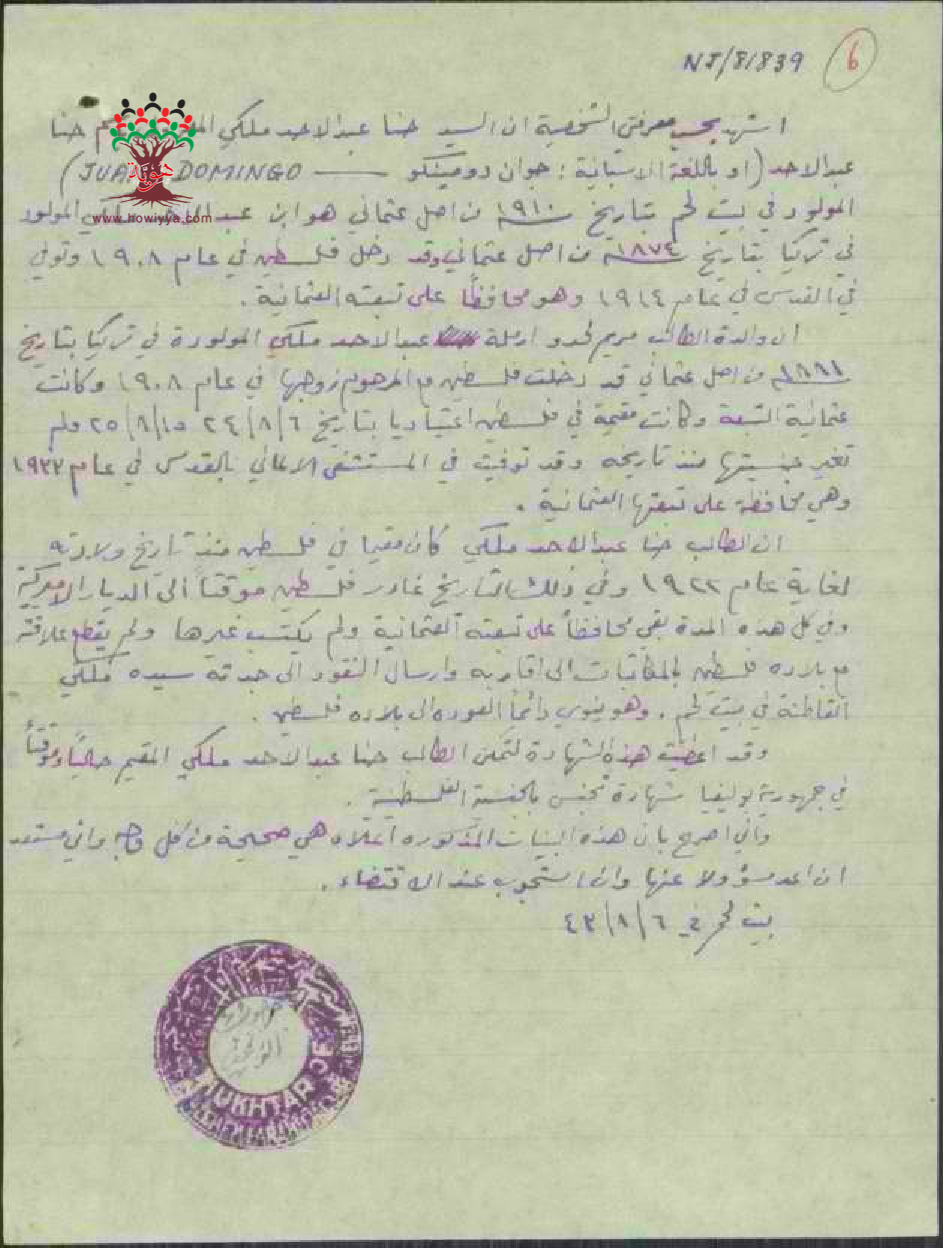 NJ/8/839
6
اشهد بحسب معرفتي الشخصية ان السيد حنا عبدالاحد ملكي حنا
عبدالاحد (او باللغة الاسبانية : جوان دومينكو — JUAN DOMINGO)
المولود في بيت لحم بتاريخ سنة ١٩١٠ من اصل عثماني هو ابن المولود
في تركيا بتاريخ سنة ١٨٧٤ من اصل عثماني وقد دخل فلسطين في عام ١٩٠٨ وتوفي
في القدس في عام ١٩١٤ وهو محافظاً على تبعته العثمانية .
ان والدة الطالب مريم لحدو ارملة عبدالاحد ملكي المولودة في تركيا بتاريخ
سنة ١٨٨١ من اصل عثماني قد دخلت فلسطين مع المرحوم زوجها في عام ١٩٠٨ وكانت
عثمانية التبعة وكانت مقيمة في فلسطين اعتياديا بتاريخ ٢٤/٨/٦ و ٢٥/٨/١ ولم
تغير جنسيتها منذ تاريخه وقد توفيت في المستشفى الالماني بالقدس في عام ١٩٣٢
وهي محافظة على تبعتها العثمانية .
ان الطالب حنا عبدالاحد ملكي كان مقيما في فلسطين منذ تاريخ ولادته
لغاية عام ١٩٢٢ وفي ذلك التاريخ غادر فلسطين موقتاً الى الديار الاميركية
وفي كل هذه المدة بقي محافظاً على تبعته العثمانية ولم يكتسب غيرها ولم يقطع علاقته
مع بلاده فلسطين بالمكاتبات الى اقاربه وارسال النقود الى جدته سيده ملكي
القاطنة في بيت لحم . وهو ينوي دائماً العوده الى بلاده فلسطين .
وقد اعطيت هذه الشهادة لتمكن الطالب حنا عبدالاحد ملكي المقيم حالياً وموقتاً
في جمهورية بوليفيا شهادة تجنس بالجنسية الفلسطينية .
واني اصرح بان هذه البينات المذكوره اعلاه هي صحيحة من كل وجه واني مستعد
ان اعد مسؤولا عنها وان استجوب عند الاقتضاء .
بيت لحم في ٤٣/٨/٦
MUKHTAR OF
هوية
www.howiyya.com